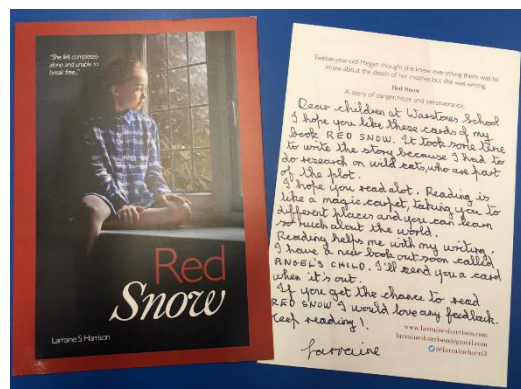 "She felt completely
alone and unable to
break free..."
Red
Snow
Larraine S Harrison
Twelve-year-old Megan thought she knew everything there was to
know about the death of her mother, but she was wrong.
Red Snow
A story of danger, hope and perseverance.
Dear children at Warstones School
I hope you like these cards of my
book RED SNOW. It took some time
to write the story because I had to
do research on wild cats, who are part
of the plot.
I hope you read alot. Reading is
like a magic carpet, taking you to
different places and you can learn
so much about the world.
Reading helps me with my writing.
I have a new book out soon called
ANGEL'S CHILD. I'll send you a card
when it's out.
If you get the chance to read
RED SNOW I would love any feedback.
Keep reading!
www.larraineharrison.com
larrainesharrison@gmail.com
Larraine